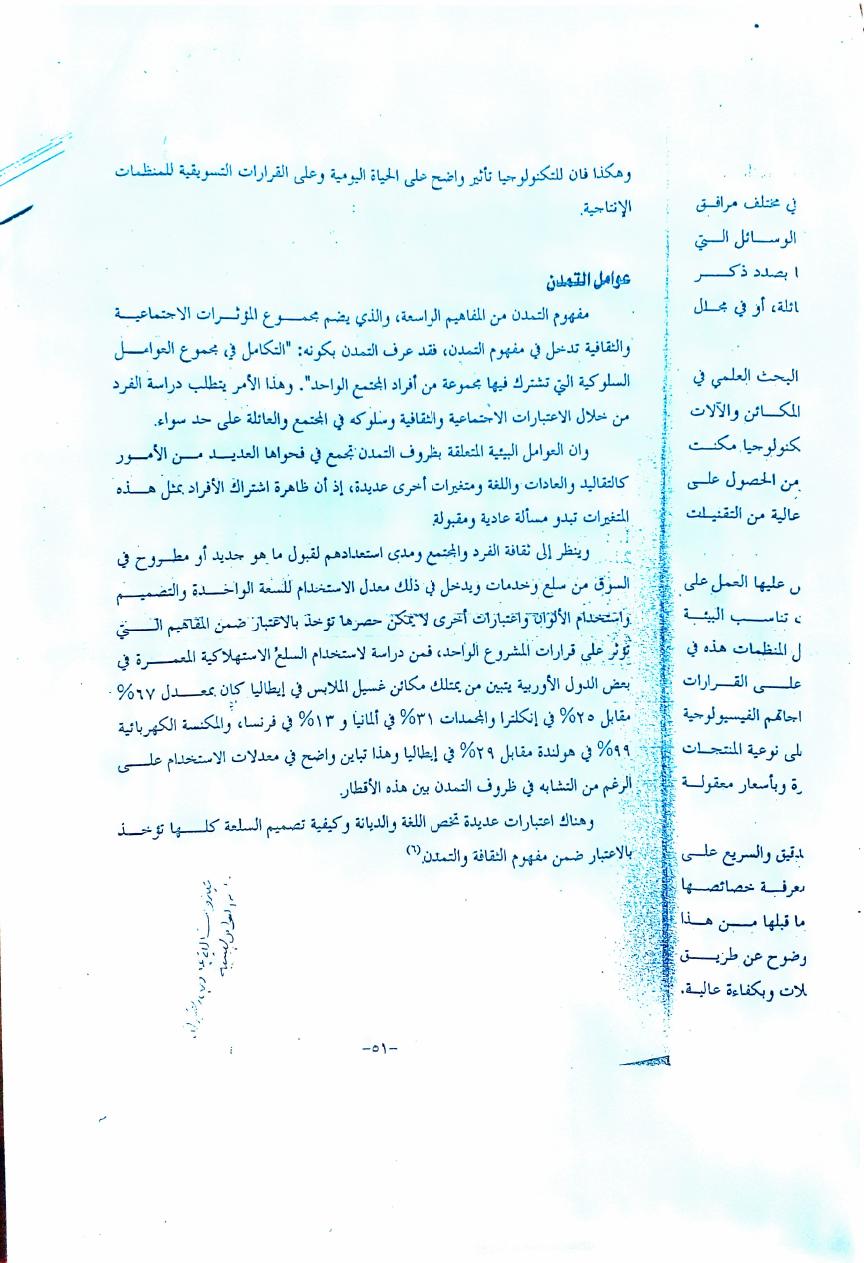 وهكذا فان للتكنولوجيا تأثير واضح على الحياة اليومية وعلى القرارات التسويقية للمنظمات
الإنتاجية.
عوامل التمدن
مفهوم التمدن من المفاهيم الواسعة، والذي يضم مجموع المؤثرات الاجتماعية
والثقافية تدخل في مفهوم التمدن، فقد عرف التمدن بكونه: "التكامل في مجموع العوامل
السلوكية التي تشترك فيها مجموعة من أفراد المجتمع الواحد". وهذا الأمر يتطلب دراسة الفرد
من خلال الاعتبارات الاجتماعية والثقافية وسلوكه في المجتمع والعائلة على حد سواء.
وان العوامل البيئية المتعلقة بظروف التمدن تجمع في فحواها العديد من الأمور
كالتقاليد والعادات واللغة ومتغيرات أخرى عديدة، إذ أن ظاهرة اشتراك الأفراد بمثل هذه
المتغيرات تبدو مسألة عادية ومقبولة.
وينظر إلى ثقافة الفرد والمجتمع ومدى استعدادهم لقبول ما هو جديد أو مطروح في
السوق من سلع وخدمات ويدخل في ذلك معدل الاستخدام للسعة الواحدة والتصميم
واستخدام الألوان واعتبارات أخرى لا يمكن حصرها تؤخذ بالاعتبار ضمن المفاهيم التي
تؤثر على قرارات المشروع الواحد، فمن دراسة لاستخدام السلع الاستهلاكية المعمرة في
بعض الدول الأوربية يتبين من يمتلك مكائن غسيل الملابس في إيطاليا كان بمعدل ٦٧%
مقابل ٢٥% في إنكلترا والمجمدات ٣١% في ألمانيا و ١٣% في فرنسا، والمكنسة الكهربائية
٩٩% في هولندة مقابل ٢٩% في إيطاليا وهذا تباين واضح في معدلات الاستخدام على
الرغم من التشابه في ظروف التمدن بين هذه الأقطار.
وهناك اعتبارات عديدة تخص اللغة والديانة وكيفية تصميم السلعة كلها تؤخذ
بالاعتبار ضمن مفهوم الثقافة والتمدن.(٦)
-٥١-
في مختلف مرافق
الوسائل التي
ا بصدد ذكر
ائلة، أو في مجال
البحث العلمي في
المكائن والآلات
كنولوجيا مكنت
من الحصول على
عالية من التقنيات
س عليها العمل على
، تناسب البيئة
ل المنظمات هذه في
على القرارات
اجاتهم الفيسيولوجية
لى نوعية المنتجات
رة وبأسعار معقولة
دقيق والسريع على
عرفة خصائصها
ما قبلها من هذا
وضوح عن طريق
لات وبكفاءة عالية.